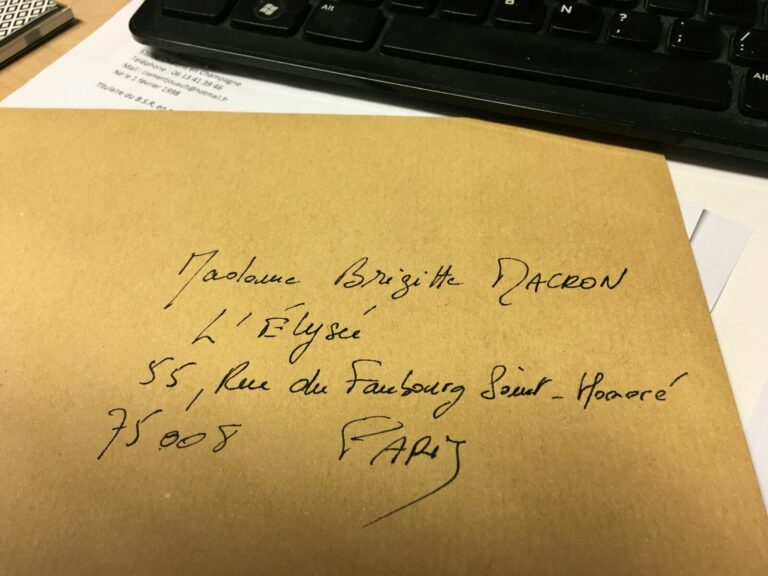 Alt
B
N
?
;
/
Alt
en Champagne
Téléphone : 06 13 41 39 46
Né le 1 février 1998
Titulaire du B.S.R. en
Madame Brigitte MACRON
L'Élysée
55, Rue du Faubourg Saint-Honoré
75008 PARIS